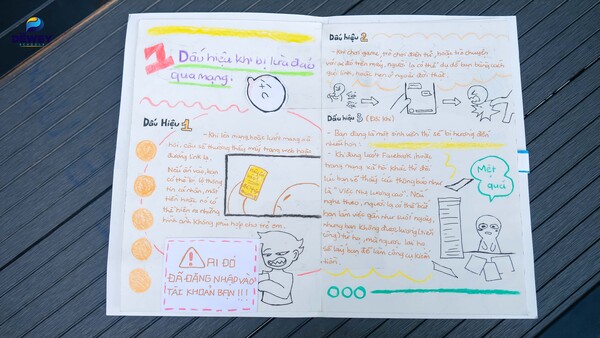 DEWEY
SCHOOLS
1 Dấu hiệu khi bị lừa đảo
qua mạng.
Dấu Hiệu 1
- Khi lên mạng hoặc lướt mạng xã
hội, cậu sẽ thường thấy mấy trang web hoặc
đường link lạ.
Nếu ấn vào, bạn
có thể bị lộ thông
tin cá nhân, mất
tiền hoặc nó có
thể hiện ra những
hình ảnh không phù hợp cho trẻ em.
AI ĐÓ
ĐÃ ĐĂNG NHẬP VÀO
TÀI KHOẢN BẠN !!!
Dấu hiệu 2
- Khi chơi game, trò chơi điện tử, hoặc trò chuyện
với ai đó trên mạng, người lạ có thể dụ dỗ bạn bằng cách
gửi hình, thiếc hẹn ở ngoài đời thật.
Dấu hiệu 3 (Đôi khi)
- Bạn đang là một sinh viên thì sẽ bị hướng đến
nhiều hơn:
- Khi đang lướt Facebook, hoặc
trang mạng xã hội khác, thì đôi
lúc bạn sẽ thấy các thông báo như
là "Việc nhẹ lương cao". Nếu
nghe theo, người lạ có thể bắt
bạn làm việc gần như suốt ngày,
nhưng bạn không được lương (tiền
công) từ họ mà người lạ họ
sẽ lấy bạn để làm công cụ kiếm
tiền.
Mệt
quá